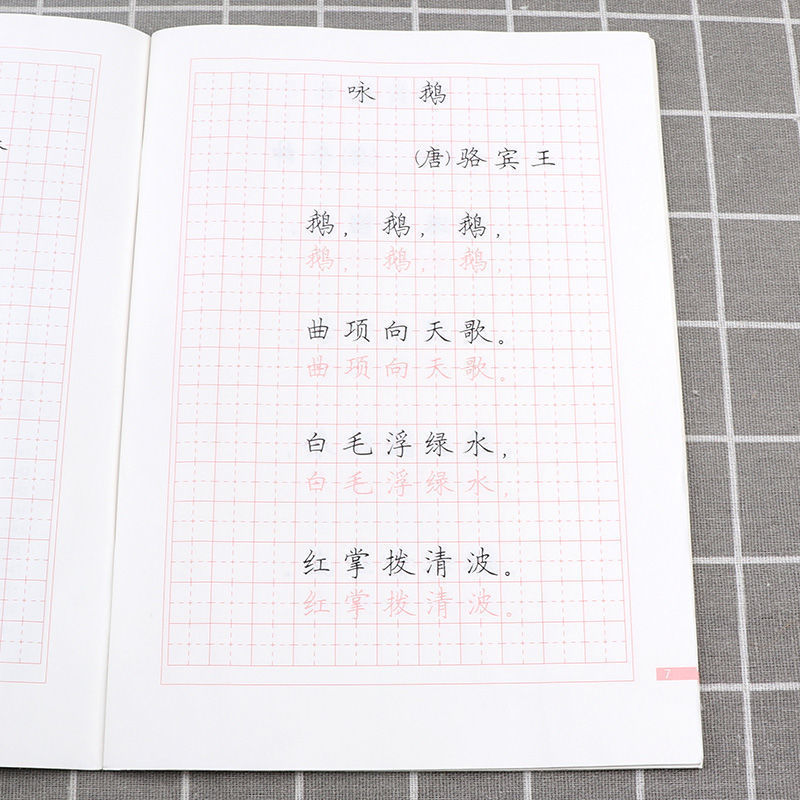 咏 鹅
(唐)骆宾王
鹅，鹅，鹅，
鹅，鹅，鹅，
曲项向天歌。
曲项向天歌。
白毛浮绿水，
白毛浮绿水，
红掌拨清波。
红掌拨清波。
7